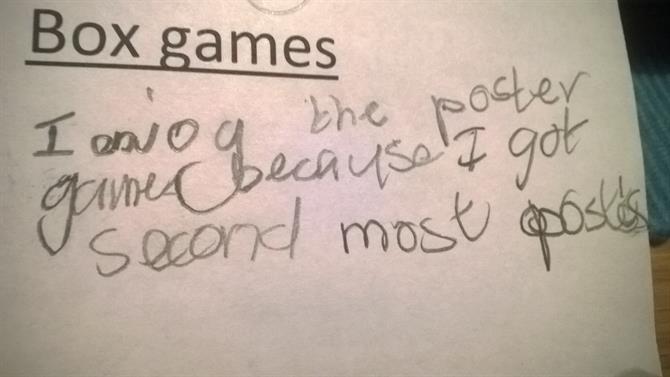 Box games
I enjoy the poster
game because I got
second most posts